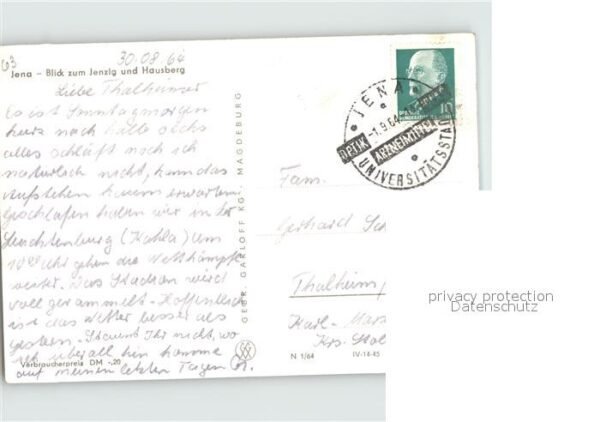 63
30.08.64
Jena – Blick zum Jenzig und Hausberg
Liebe Thalheimer
Es ist Sonntagmorgen
kurz nach halb sechs
alles schläft noch ich
natürlich nicht, kann das
Aufstehen kaum erwarten.
Geschlafen haben wir in der
Leuchtenburg (Kahla) Um
10 00 Uhr gehen die Wettkämpfe
weiter. Das Stadion wird
voll gerammelt. Hoffentlich
ist das Wetter besser als
gestern. Staunt Ihr nicht, wo
ich überall hin komme
auf meinen letzten Tagen
Verbraucherpreis DM -,20
GEBR. GARLOFF KG., MAGDEBURG
JENA
-1.9.64
OPTIK
ARZNEIMITTEL
UNIVERSITÄTSSTADT
10
Fam.
Gerhard Sc
Thalheim,
Karl-Marx
Krs. Stol
N 1/64
IV-14-45
privacy protection
Datenschutz